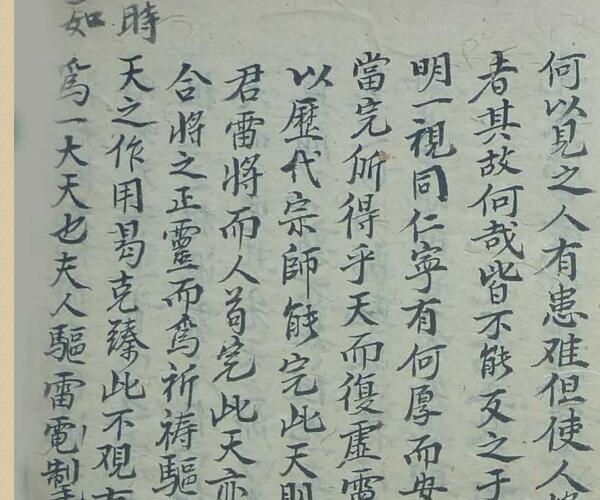 何以見之人有患难但使人
者其故何哉皆不能反之于
明一視同仁寧有何厚而毋
當完所得乎天而復虛靈
以歷代宗師能完此天則
君雷將而人苟完此天亦
合將之正靈而爲祈禱驅
時
天之作用曷克臻此不觀
如
爲一大天也夫人驅雷電制